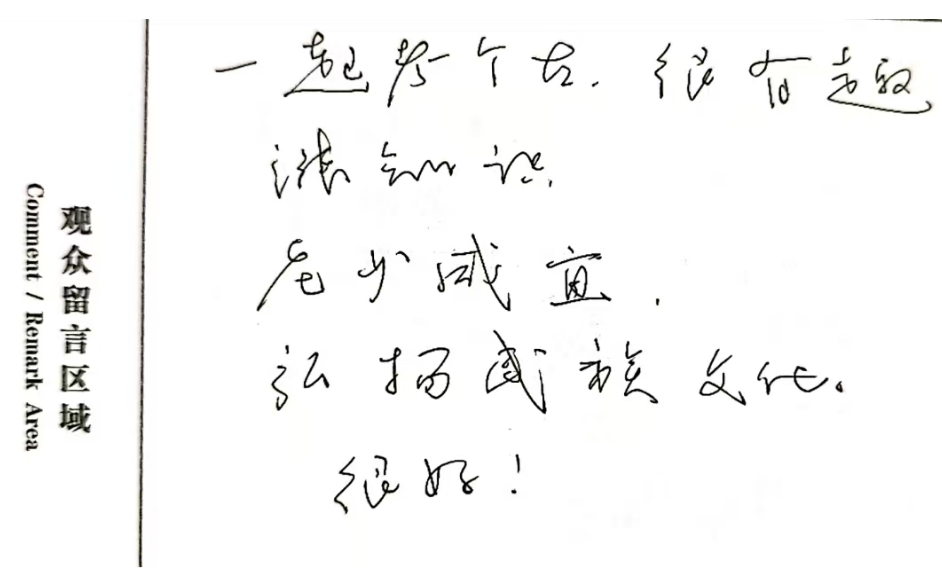 观众留言区域
Comment / Remark Area
一起考个古.很有趣
涨知识.
老少咸宜.
弘扬民族文化.
很好!